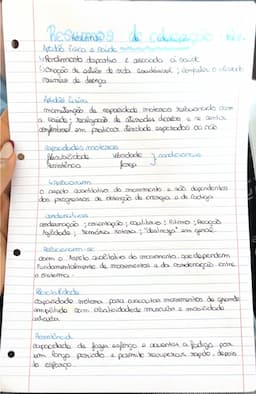 RESUMÃO de EDUCAÇÃO
Aptidão física e saúde
Rendimento desportivo e associado à saúde
criação de estilos de vida saudável; combater o
de doença
Aptidão física
manutenção de capacidade motoras relacionada com
a saúde; realização de diárias e se sentir
em praticar atividade esportiva ou não
capacidades motoras
flexibilidade velocidade condicionais
Resistência força
Relacionam
o aspeto quantitativo do movimento e são dependentes
dos processos de obtenção de energia e da fadiga
coordenativas
coordenação; orientação; equilíbrio; Ritmo; Reação
Agilidade; memória motora; "destreza" em geral.
Relacionam-se
com o aspeto qualitativo do movimento, que dependem
fundamentalmente de movimentos e da coordenação entre
o sistema.
Flexibilidade
capacidade motora para executar movimentos de grande
amplitude com elasticidade muscular e mobilidade
Resistência
capacidade de fazer esforço e aguentar a fadiga por
um longo período e permite recuperar rapido, depois
do esforço.